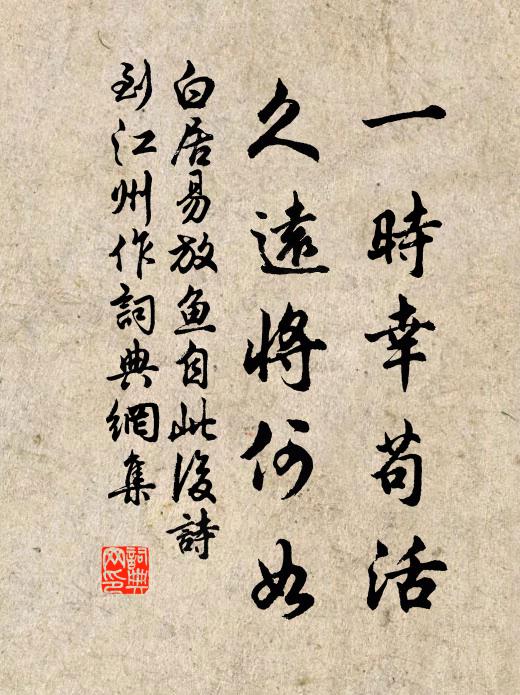 一時幸苟活
久遠將何如
白居易放鱼自此後詩
到江州作詞典網集
詞典网印